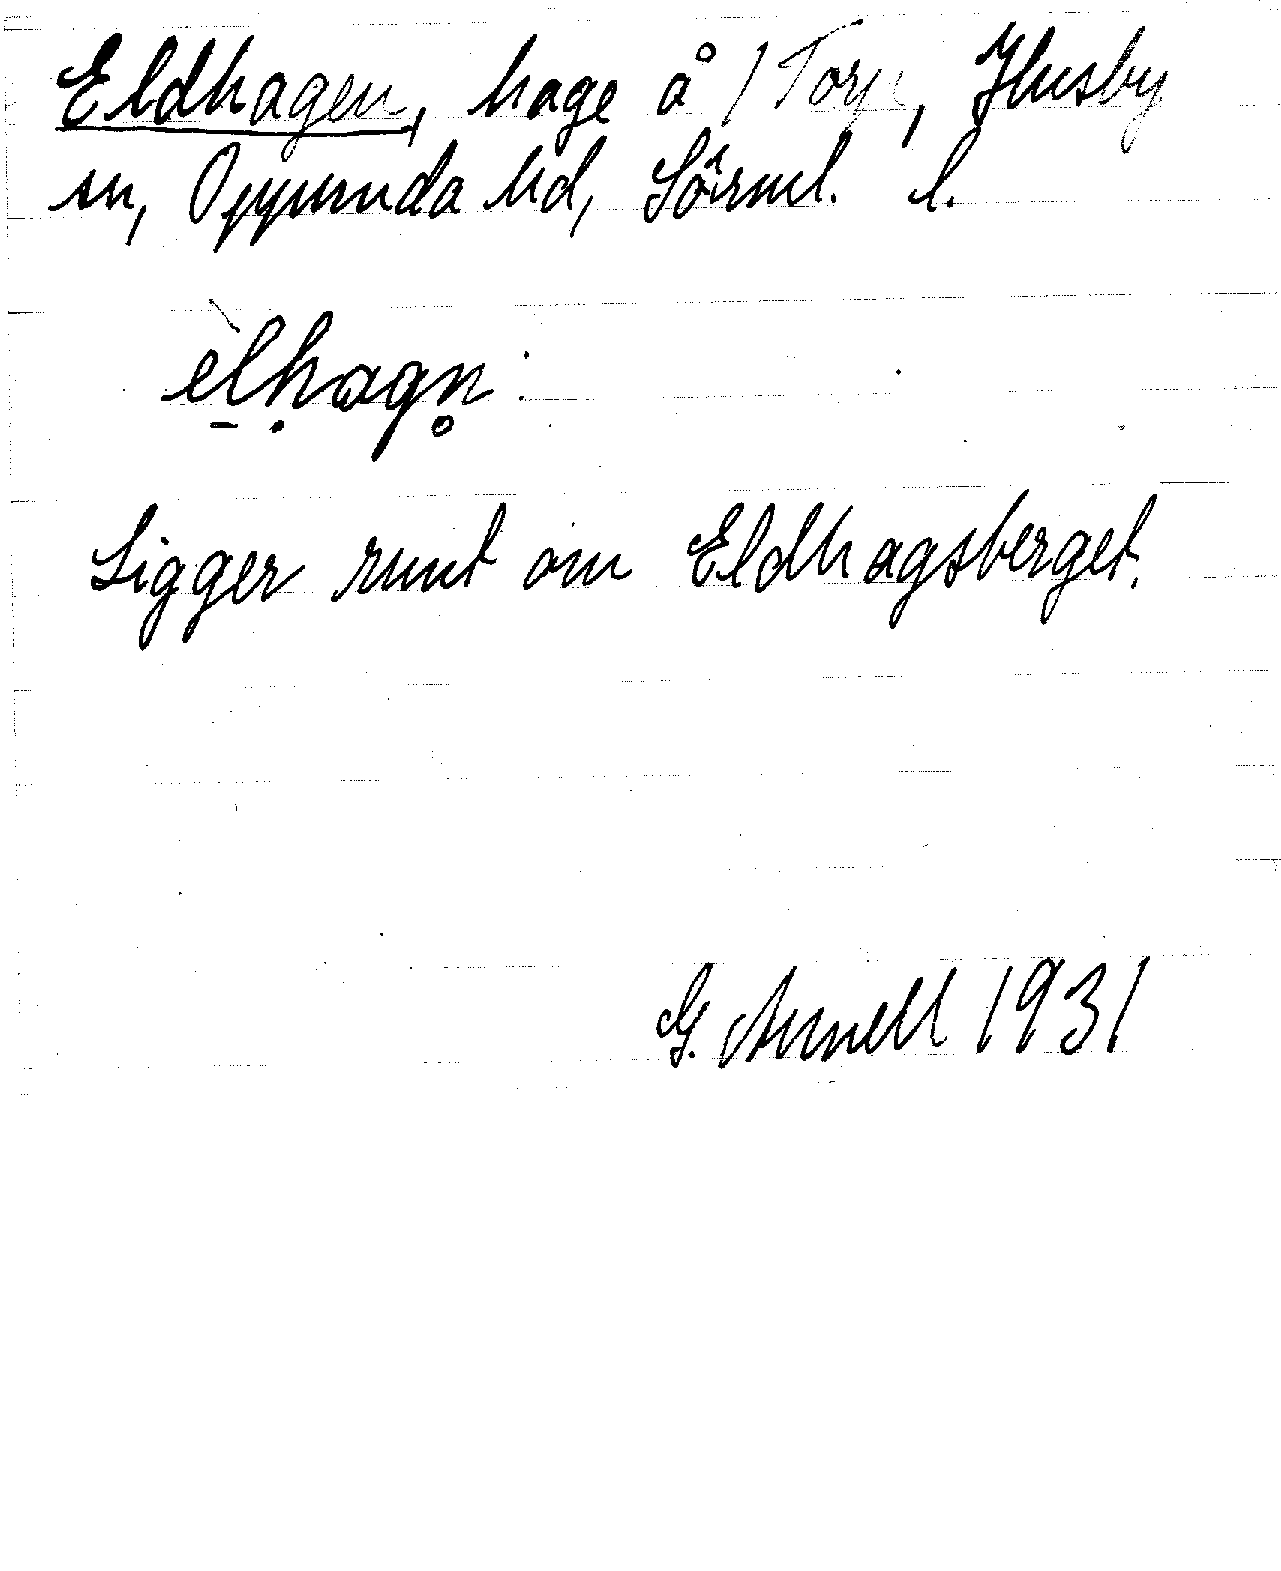 Eldhagen, hage å /Torp, Husby
sn, Oppunda hd, Sörml. l.
èl̠ḥagn̥
Ligger runt om Eldhagsberget.
G. Arnell 1931